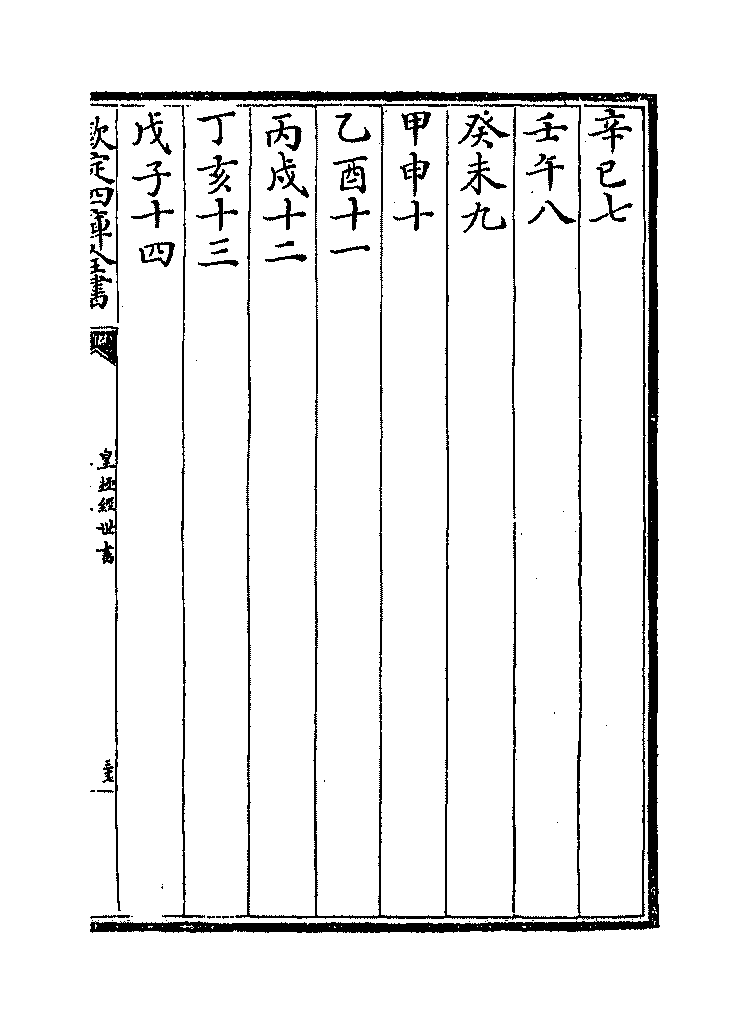 辛巳七
壬午八
癸未九
甲申十
乙酉十一
丙戌十二
丁亥十三
戊子十四
欽定四庫全書
皇極經世書